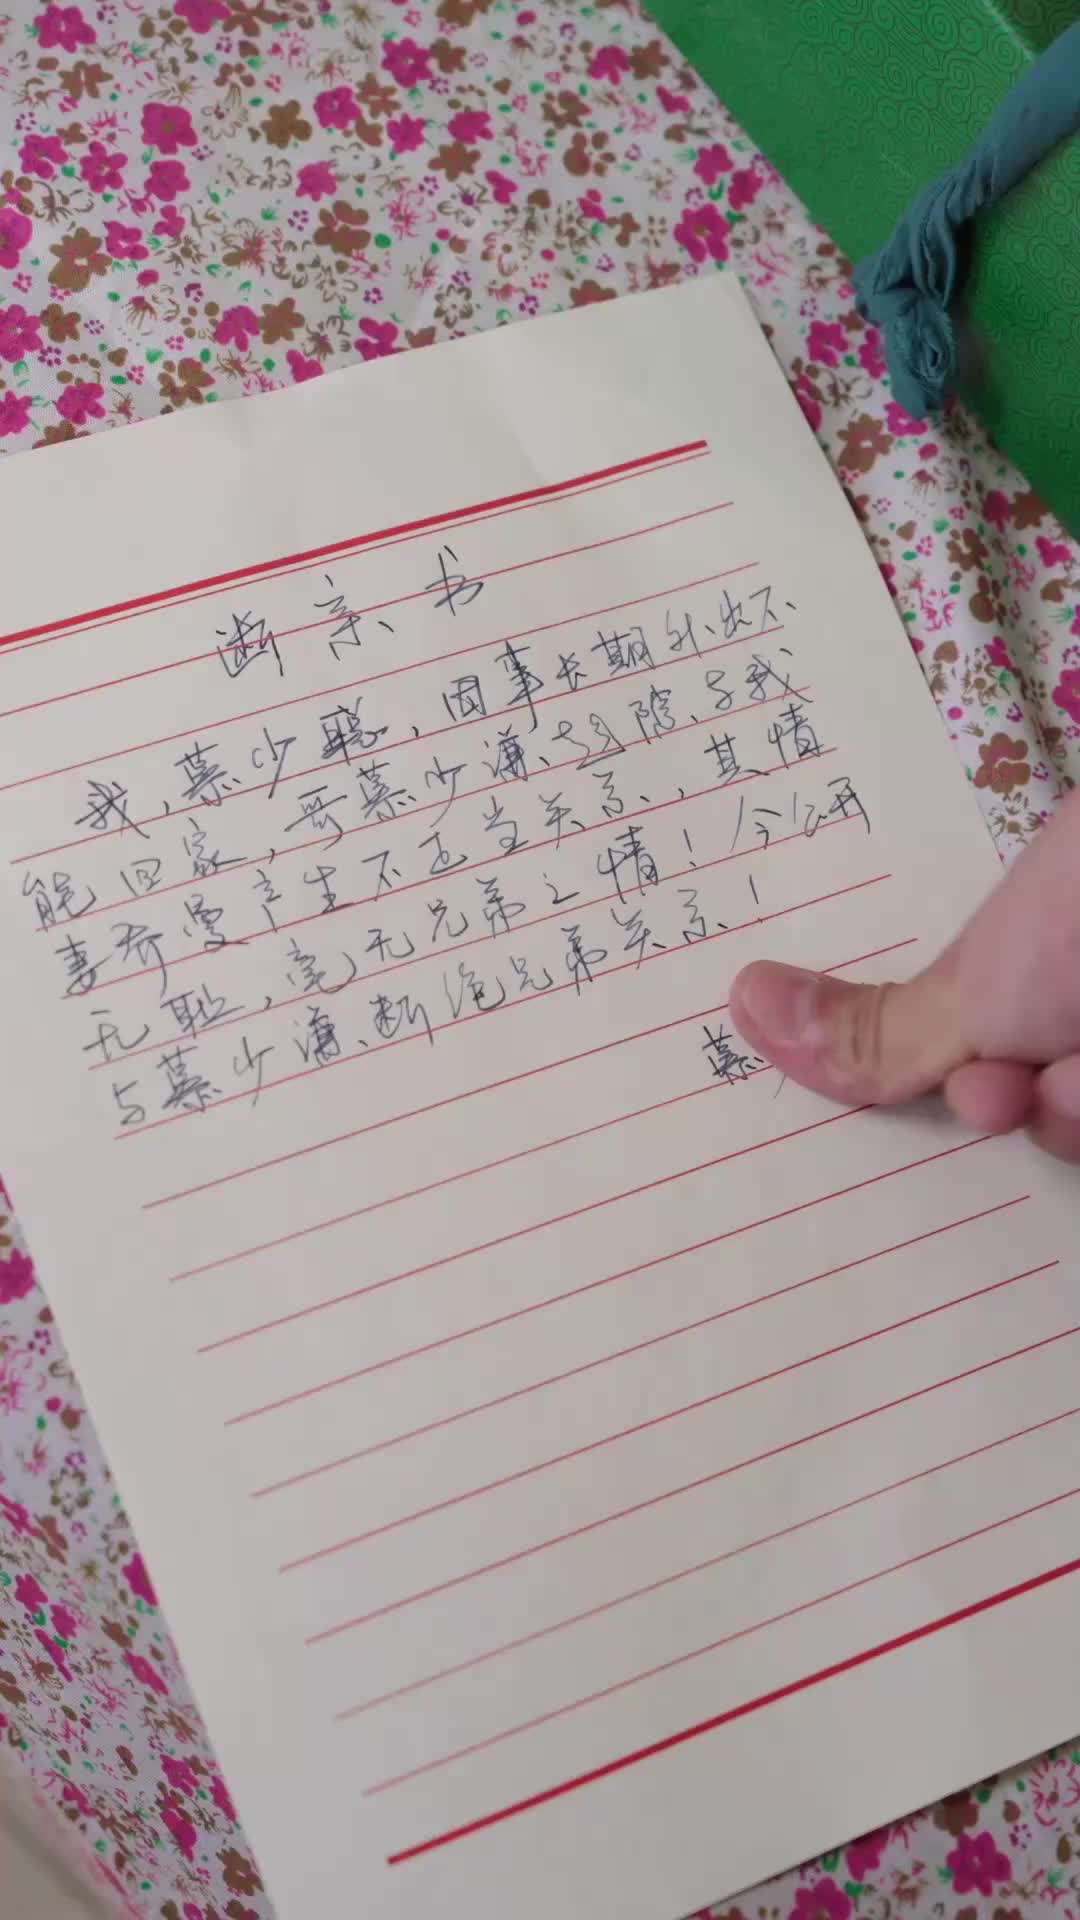 断亲书
我，慕少聪，因事长期外出不
能回家，哥慕少谦、趁隙、与我
妻乔曼产生不正当关系，其情
无耻，毫无兄弟之情！今公开
与慕少谦、断绝兄弟关系！
慕